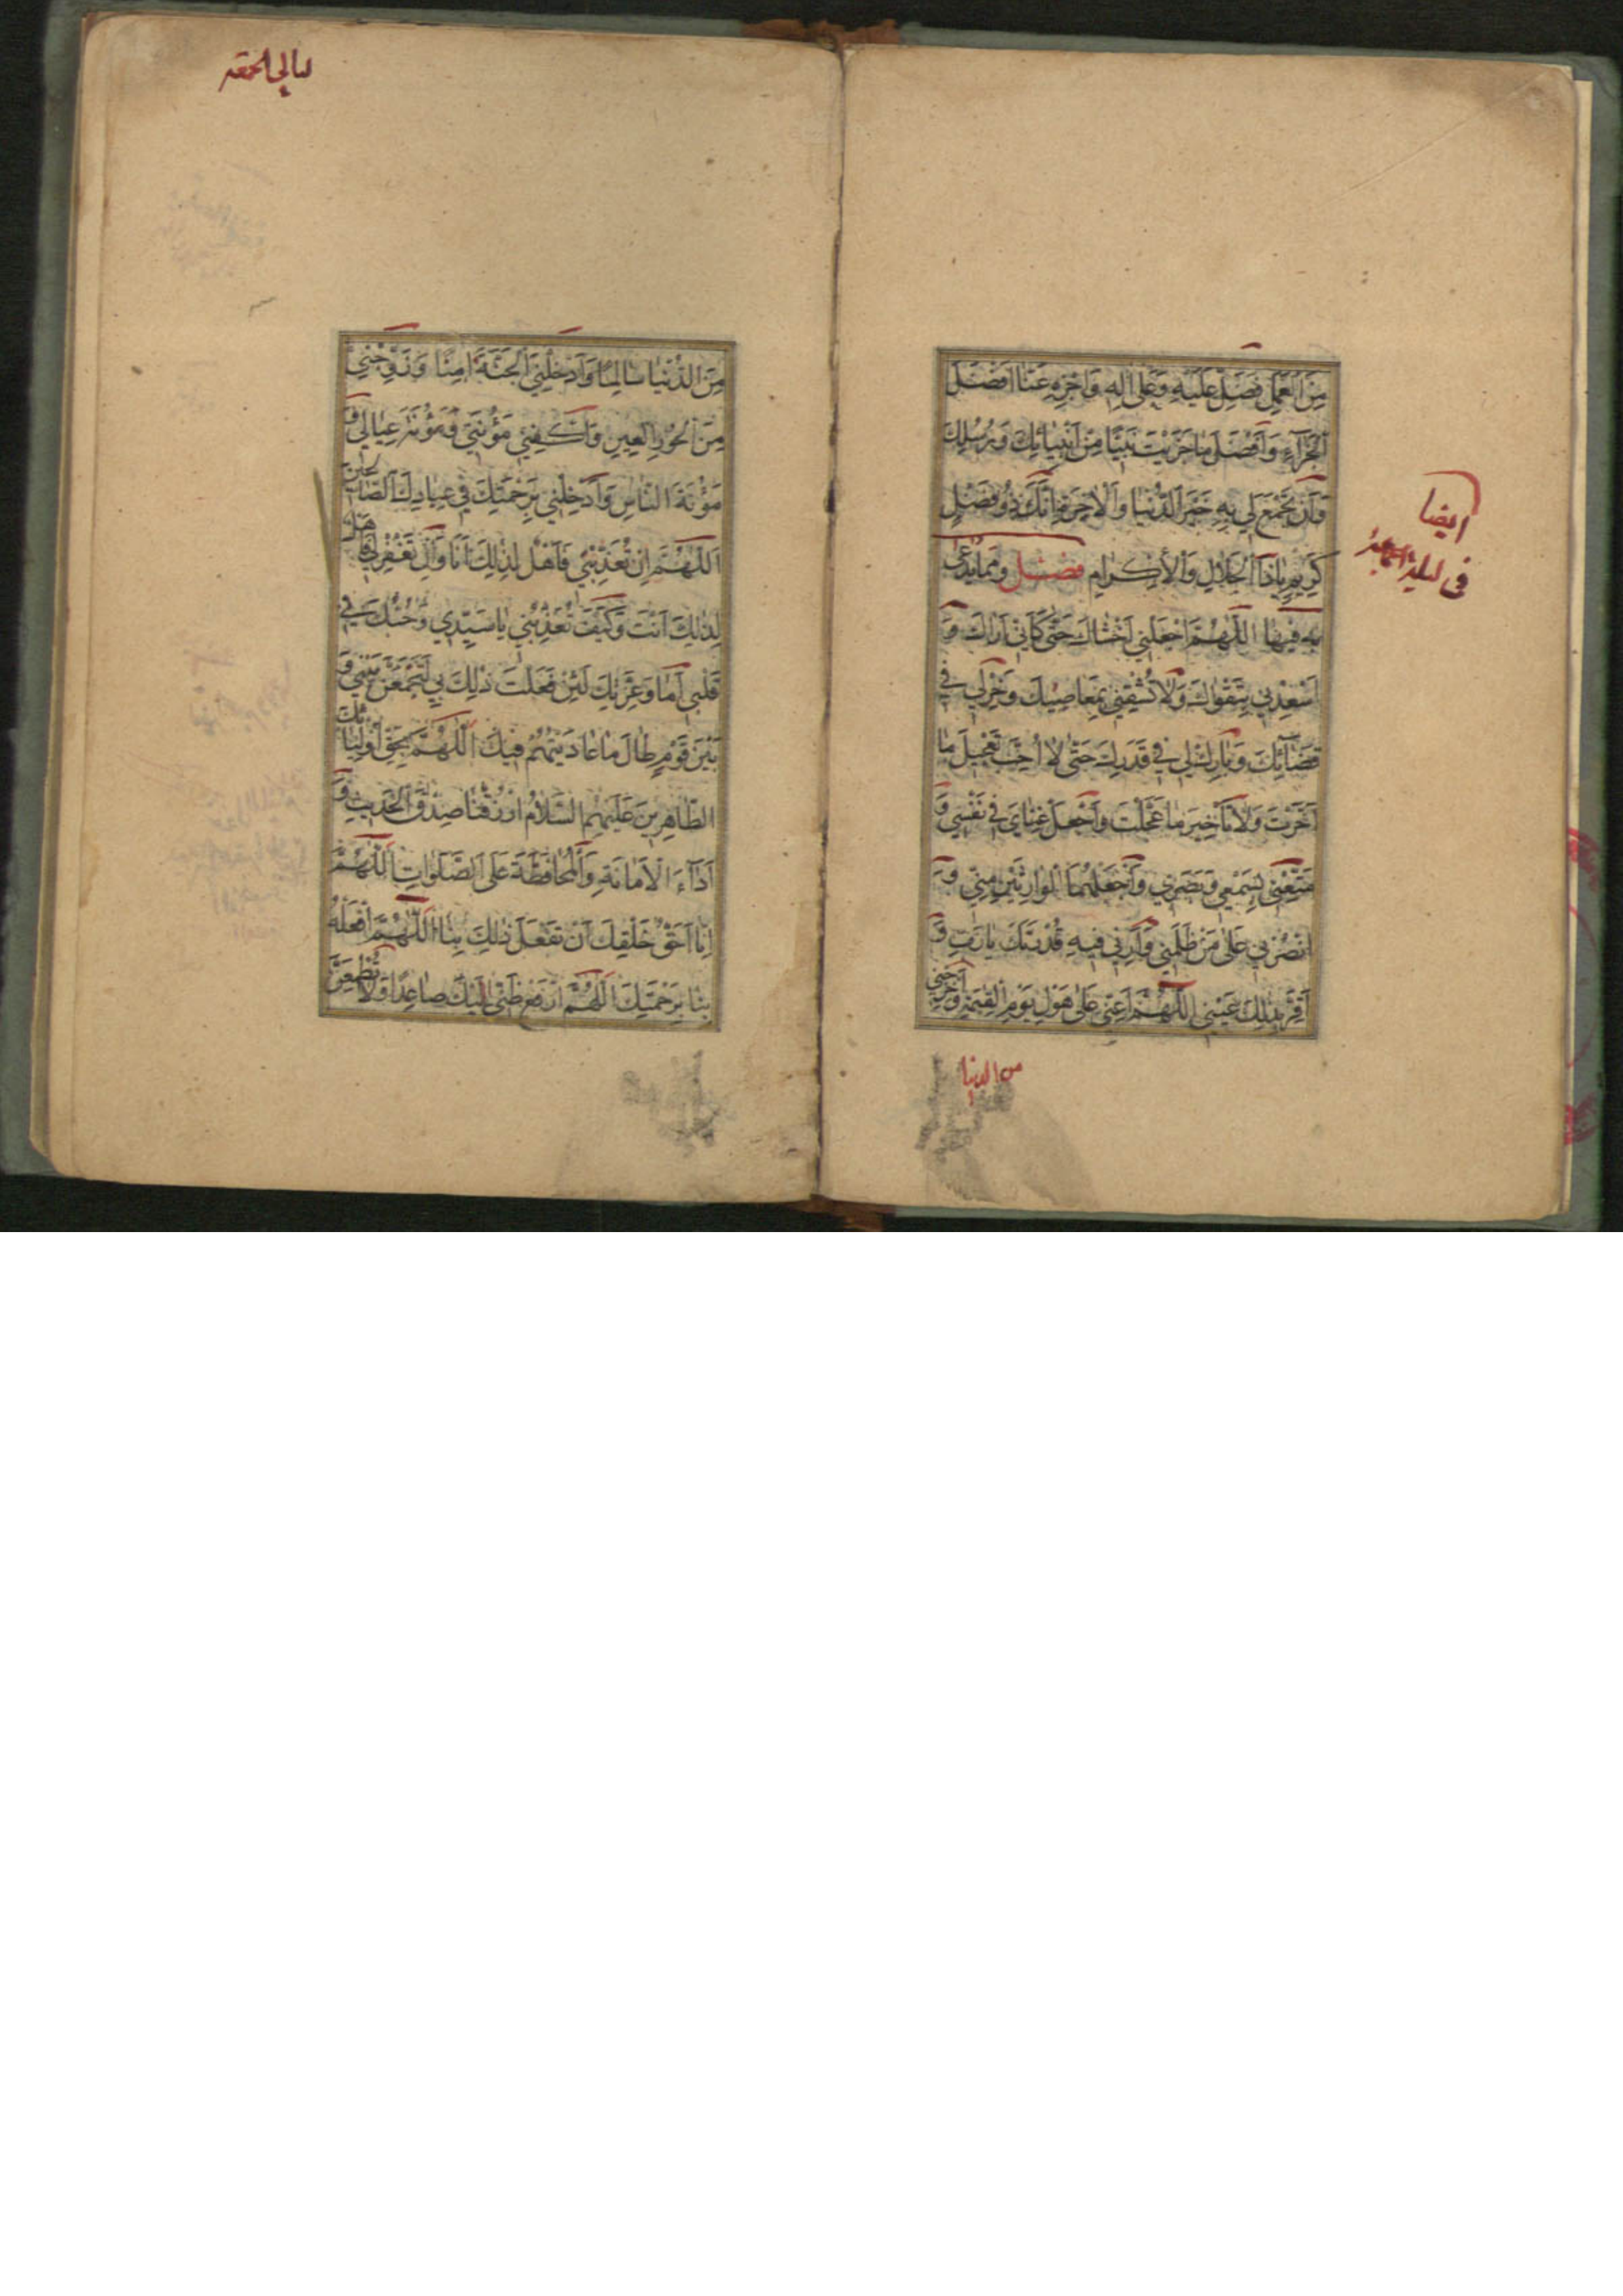 مِنَ الْعَمَلِ فَصَلِّ عَلَيْهِ وَعَلَى اٰلِهِ وَاجْزِهِ عَنَّا اَفْضَلَ
الْجَزَآءِ وَاَفْضَلَ مَا جَزَيْتَ نَبِيًّا مِنْ اَنْبِيَائِكَ وَرُسُلِكَ
وَاَنْ تَجْمَعَ لِي بِهِ خَيْرَ الدُّنْيَا وَالْاٰخِرَةِ اِنَّكَ ذُو فَضْلٍ
كَرِيمٍ يَا ذَا الْجَلَالِ وَالْاِكْرَامِ فصل ومما يدعى
به فيها اَللّٰهُمَّ اجْعَلْنِي اَخْشَاكَ حَتّٰى كَاَنِّي اَرَاكَ وَ
اَسْعِدْنِي بِتَقْوَاكَ وَلَا تُشْقِنِي بِمَعَاصِيكَ وَخِرْ لِي فِي
قَضَآئِكَ وَبَارِكْ لِي فِي قَدَرِكَ حَتّٰى لَا اُحِبَّ تَعْجِيلَ مَا
اَخَّرْتَ وَلَا تَأْخِيرَ مَا عَجَّلْتَ وَاجْعَلْ غِنَايَ فِي نَفْسِي وَ
مَتِّعْنِي بِسَمْعِي وَبَصَرِي وَاجْعَلْهُمَا الْوَارِثَيْنِ مِنِّي وَ
انْصُرْنِي عَلٰى مَنْ ظَلَمَنِي وَاَرِنِي فِيهِ قُدْرَتَكَ يَا رَبِّ وَ
اَقِرَّ بِذٰلِكَ عَيْنِي اَللّٰهُمَّ اَعِنِّي عَلٰى هَوْلِ يَوْمِ الْقِيٰمَةِ وَاَخْرِجْنِي
من الدنيا
ايضا
فى ليلة الجمعة
ليالي الجمعة
مِنَ الدُّنْيَا سَالِمًا وَاَدْخِلْنِي الْجَنَّةَ اٰمِنًا وَزَوِّجْنِي
مِنَ الْحُورِ الْعِينِ وَاكْفِنِي مَؤُنَتِي وَمَؤُنَةَ عِيَالِي وَ
مَؤُنَةَ النَّاسِ وَاَدْخِلْنِي بِرَحْمَتِكَ فِي عِبَادِكَ الصَّالِحِينَ
اَللّٰهُمَّ اِنْ تُعَذِّبْنِي فَاَهْلٌ لِذٰلِكَ اَنَا وَاِنْ تَغْفِرْ لِي فَاَهْلٌ
لِذٰلِكَ اَنْتَ وَكَيْفَ تُعَذِّبُنِي يَا سَيِّدِي وَحُبُّكَ فِي
قَلْبِي اَمَا وَعِزَّتِكَ لَئِنْ فَعَلْتَ ذٰلِكَ بِي لَتَجْمَعَنَّ بَيْنِي وَ
بَيْنَ قَوْمٍ طَالَ مَا عَادَيْتُهُمْ فِيكَ اَللّٰهُمَّ بِحَقِّ اَوْلِيَائِكَ
الطَّاهِرِينَ عَلَيْهِمُ السَّلَامُ ارْزُقْنَا صِدْقَ الْحَدِيثِ وَ
اَدَآءَ الْاَمَانَةِ وَالْمُحَافَظَةَ عَلَى الصَّلَوَاتِ اَللّٰهُمَّ
اِنَّا اَحَقُّ خَلْقِكَ اَنْ تَفْعَلَ ذٰلِكَ بِنَا اَللّٰهُمَّ افْعَلْهُ
بِنَا بِرَحْمَتِكَ اَللّٰهُمَّ ارْفَعْ ظَنِّي اِلَيْكَ صَاعِدًا وَلَا تُطْمِعَنَّ